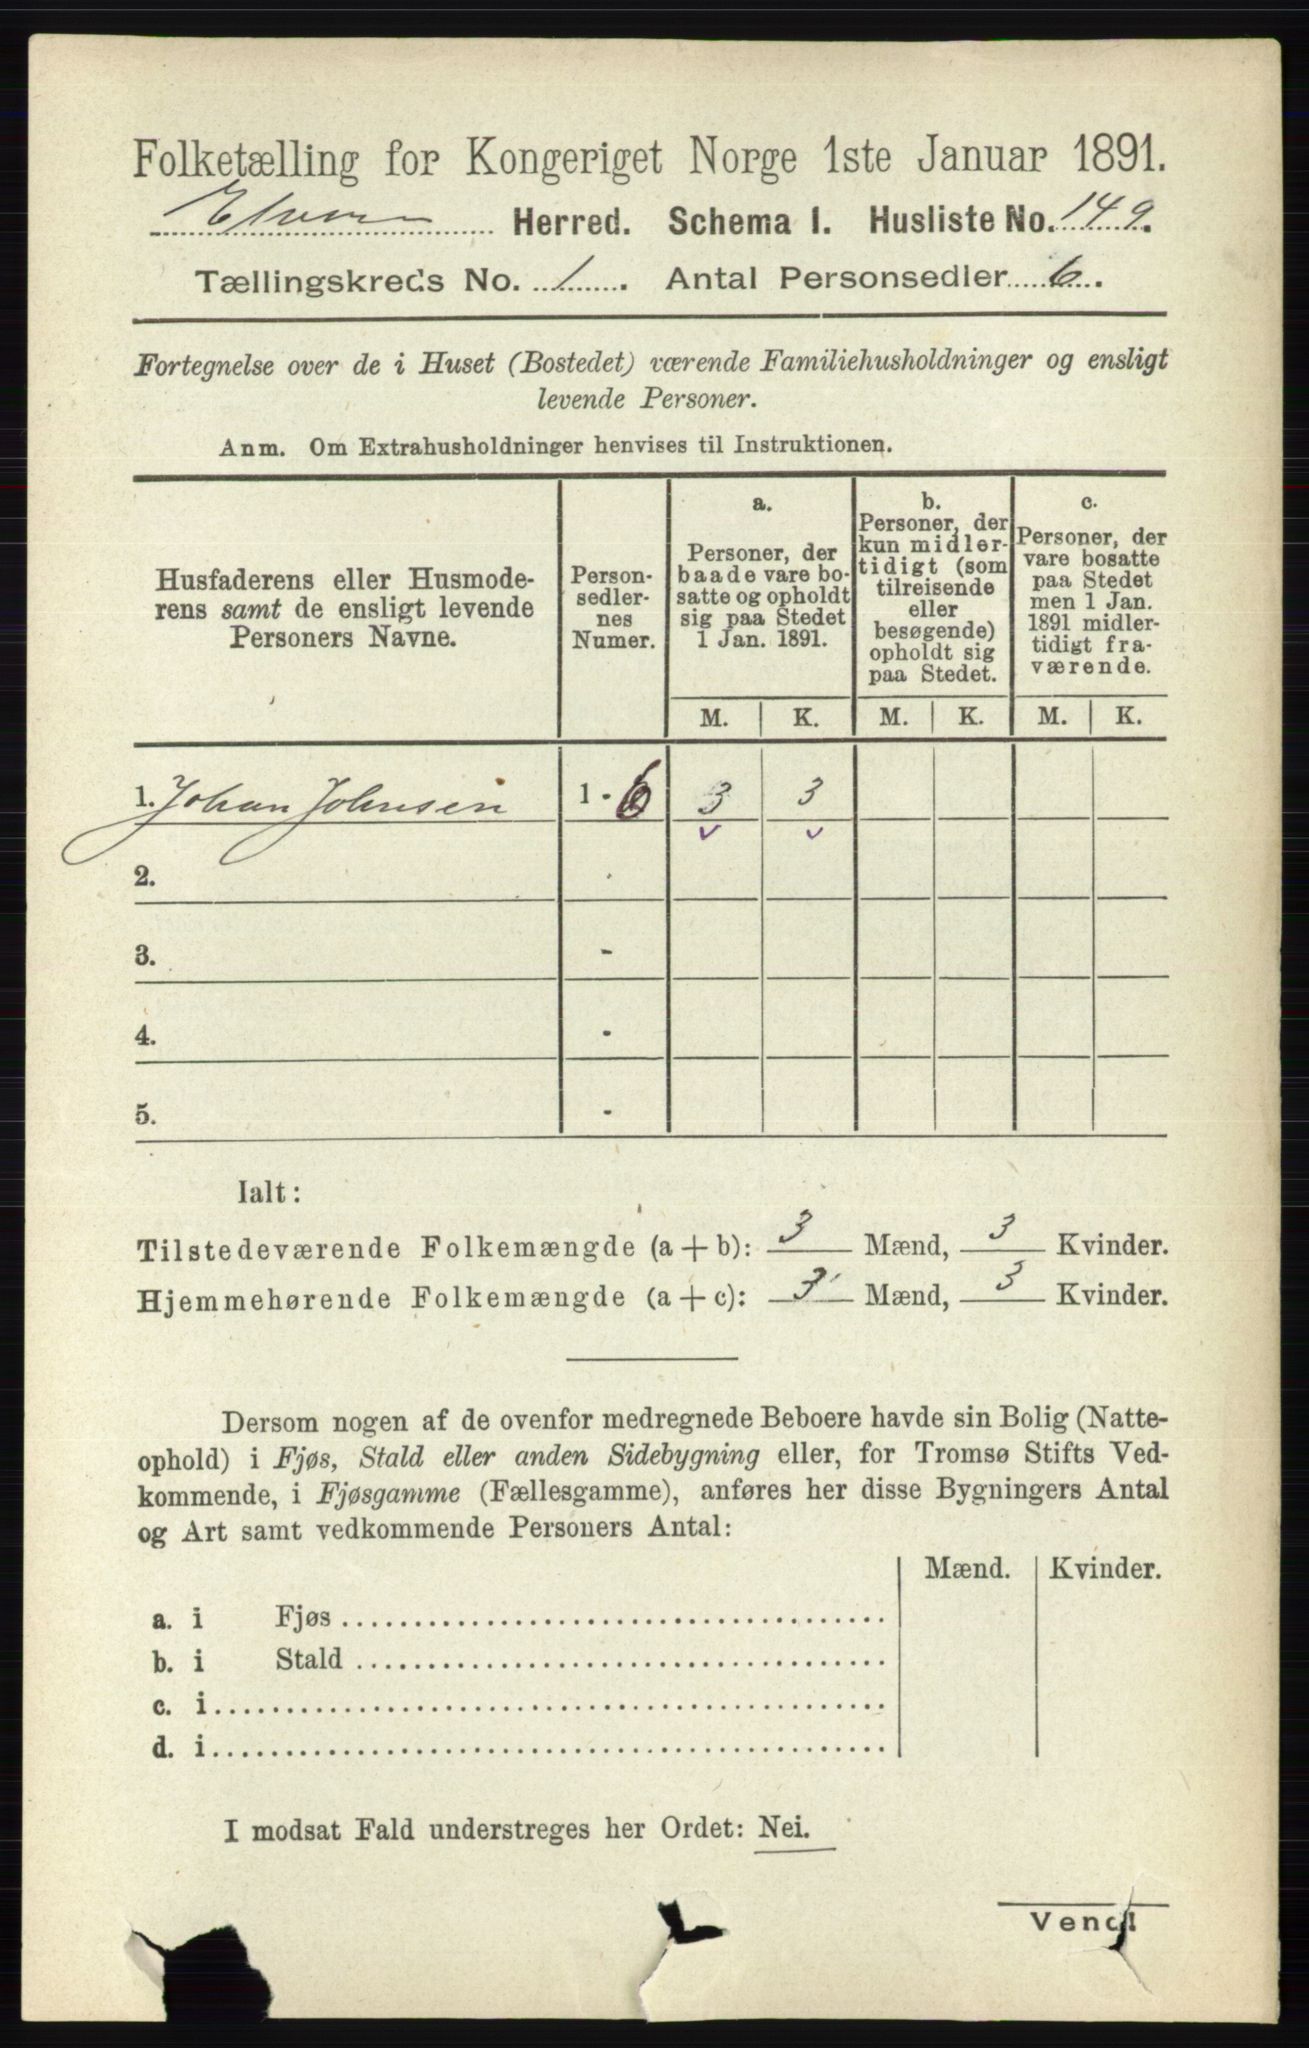 Folketælling for Kongeriget Norge 1ste Januar 1891.
Elverum Herred. Schema I. Husliste No. 149.
Tællingskreds No. 1. Antal Personsedler 6.
Fortegnelse over de i Huset (Bostedet) værende Familiehusholdninger og ensligt
levende Personer.
Anm. Om Extrahusholdninger henvises til Instruktionen.
Husfaderens eller Husmode-
rens samt de ensligt levende
Personers Navne.
Person-
sedler-
nes
Numer.
a.
Personer, der
baade vare bo-
satte og opholdt
sig paa Stedet
1 Jan. 1891.
b.
Personer, der
kun midler-
tidigt (som
tilreisende
eller
besøgende)
opholdt sig
paa Stedet.
c.
Personer, der
vare bosatte
paa Stedet
men 1 Jan.
1891 midler-
tidigt fra-
værende.
M. K. M. K. M. K.
1. Johan Johnsen 1 - 6 3 3
2. -
3. -
4. -
5. -
Ialt:
Tilstedeværende Folkemængde (a + b): 3 Mænd, 3 Kvinder.
Hjemmehørende Folkemængde (a + c): 3 Mænd, 3 Kvinder.
Dersom nogen af de ovenfor medregnede Beboere havde sin Bolig (Natte-
ophold) i Fjøs, Stald eller anden Sidebygning eller, for Tromsø Stifts Ved-
kommende, i Fjøsgamme (Fællesgamme), anføres her disse Bygningers Antal
og Art samt vedkommende Personers Antal:
Mænd. Kvinder.
a. i Fjøs
b. i Stald
c. i
d. i
I modsat Fald understreges her Ordet: Nei.
Vend!